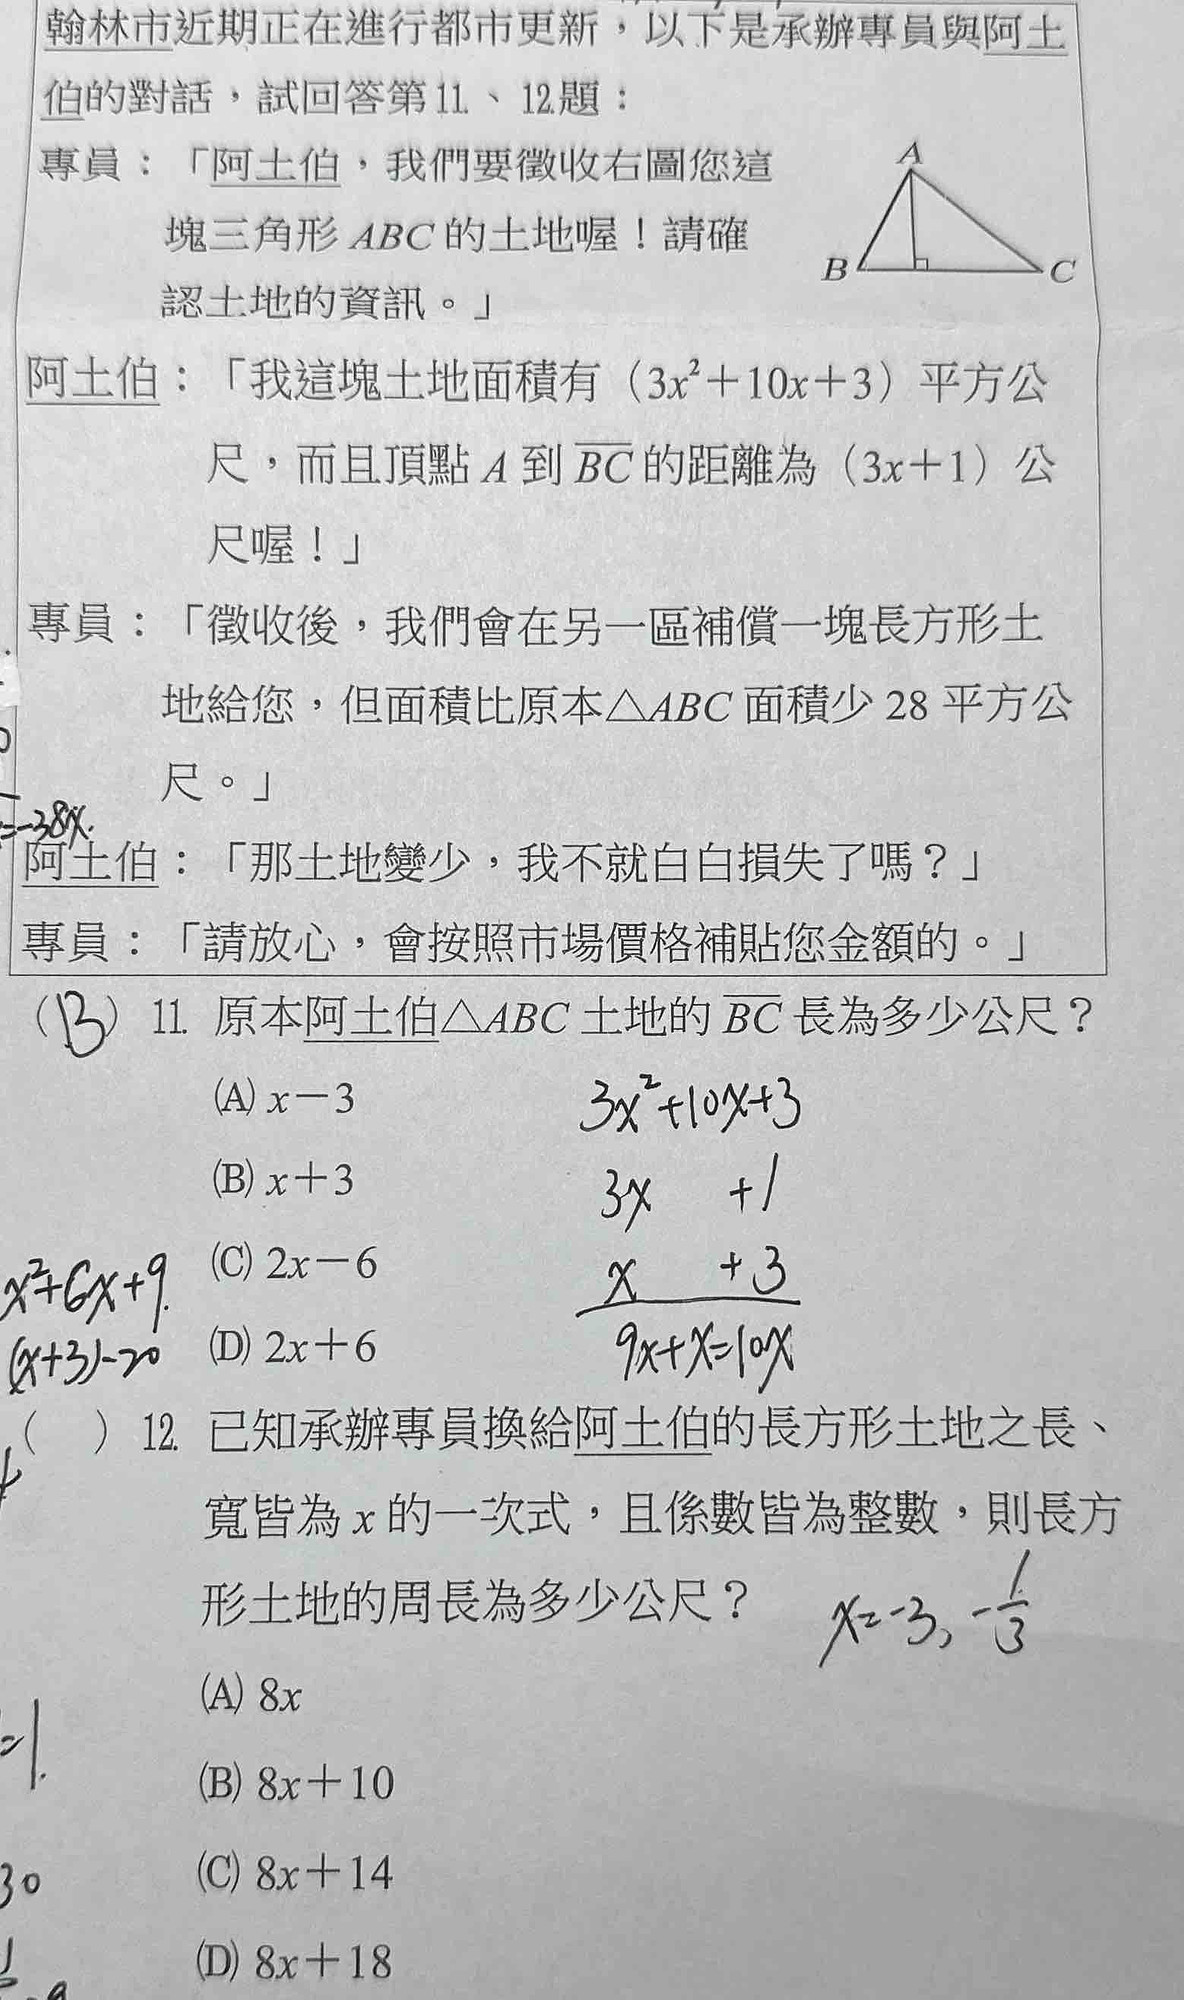 翰林市近期正在進行都市更新,以下是承辦專員與阿土
伯的對話,試回答第11.、12.題:
專員:「阿土伯,我們要徵收右圖您這
塊三角形ABC的土地喔!請確
認土地的資訊。」
A
B
C
阿土伯:「我這塊土地面積有(3x²+10x+3)平方公
尺,而且頂點A到BC的距離為(3x+1)公
尺喔!」
專員:「徵收後,我們會在另一區補償一塊長方形土
地給您,但面積比原本△ABC面積少28平方公
尺。」
=-38x.
阿土伯:「那土地變少,我不就白白損失了嗎?」
專員:「請放心,會按照市場價格補貼您金額的。」
(B) 11. 原本阿土伯△ABC土地的BC長為多少公尺?
(A) x-3
(B) x+3
(C) 2x-6
(D) 2x+6
3x²+10x+3
3x +1
x +3
9x+x=10x
x²+6x+9.
(x+3)-20
( ) 12. 已知承辦專員換給阿土伯的長方形土地之長、
寬皆為x的一次式,且係數皆為整數,則長方
形土地的周長為多少公尺?
x=-3, -1/3
(A) 8x
(B) 8x+10
(C) 8x+14
(D) 8x+18
=1.
30